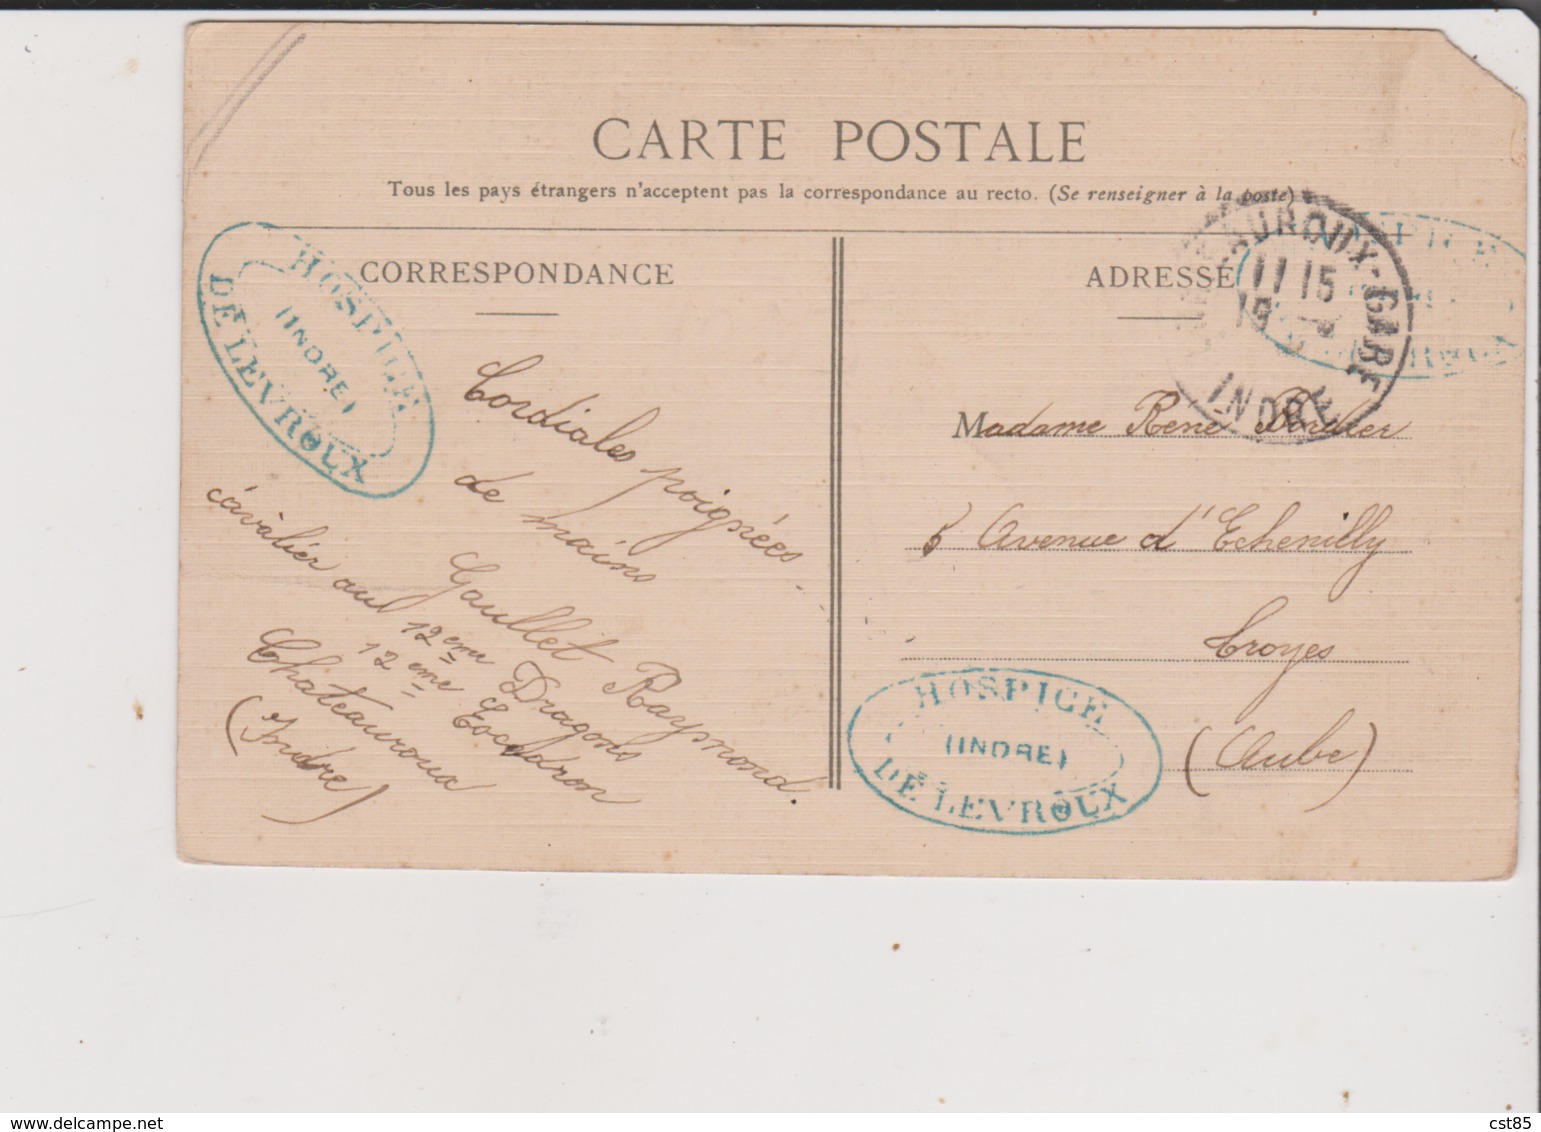 CARTE POSTALE
Tous les pays étrangers n'acceptent pas la correspondance au recto. (Se renseigner à la poste)
CORRESPONDANCE
HOSPICE
(INDRE)
DE LEVROUX
Cordiales poignées
de mains
Gaullet Raymond.
cavalier au 12eme Dragons
12eme Escadron
Chateauroux
(Indre)
ADRESSE
AUROUX-GARE
11 15
19
INDRE
Madame René Bordier
5 Avenue d'Echenilly
Troyes
(Aube)
HOSPICE
(INDRE)
DE LEVROUX
www.delcampe.net
cst85